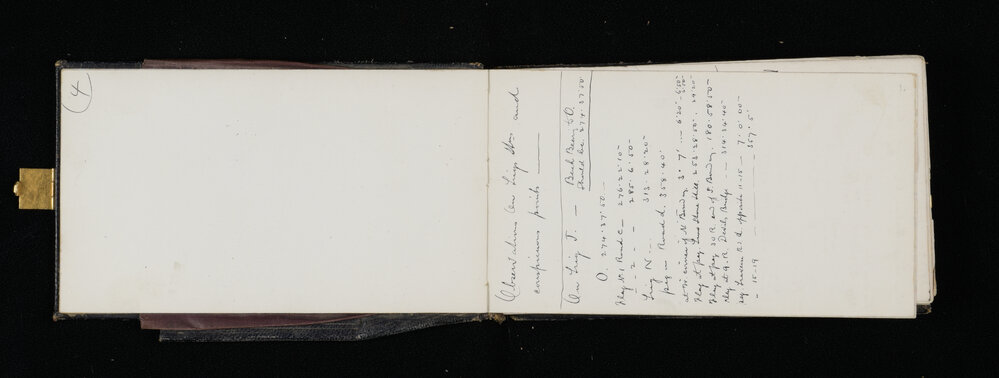 (4
Observations on Trig Stns and
conspicuous points
On Trig J. — Back Bearing to O.
should be 274.37.50
O. 274.37.50 —
Flag No 1 Road C — 276.22.10 —
" 2 — — 285.6.50 —
Trig N — 313.28.20 —
peg — Road d. 358.40
at corner of N Boundy 3° 7' — 6.20
Flag at peg Lime Stone Hill 253.28.50
Flag at peg 30 R. end of Boundary 180.58.50 —
Flag at G.R. Devils Bridge — 314.34.40
peg opposite 11.15 — 7.0.00 —
— 15-19 — 357.5